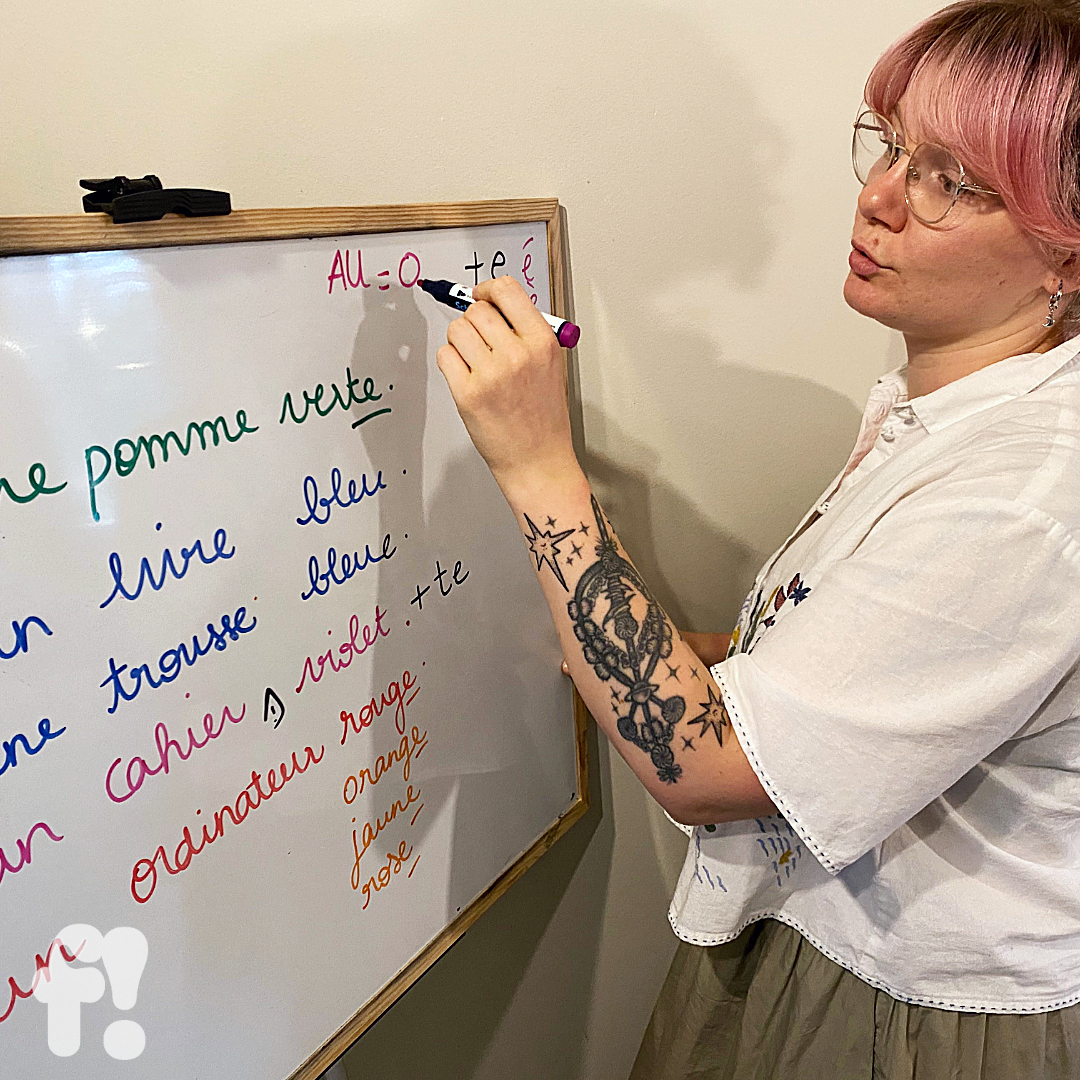 AU = O +e é
ne pomme verte.
un livre bleu.
une trousse bleue.
un cahier violet. +te
un ordinateur rouge.
orange
jaune
rose
f!